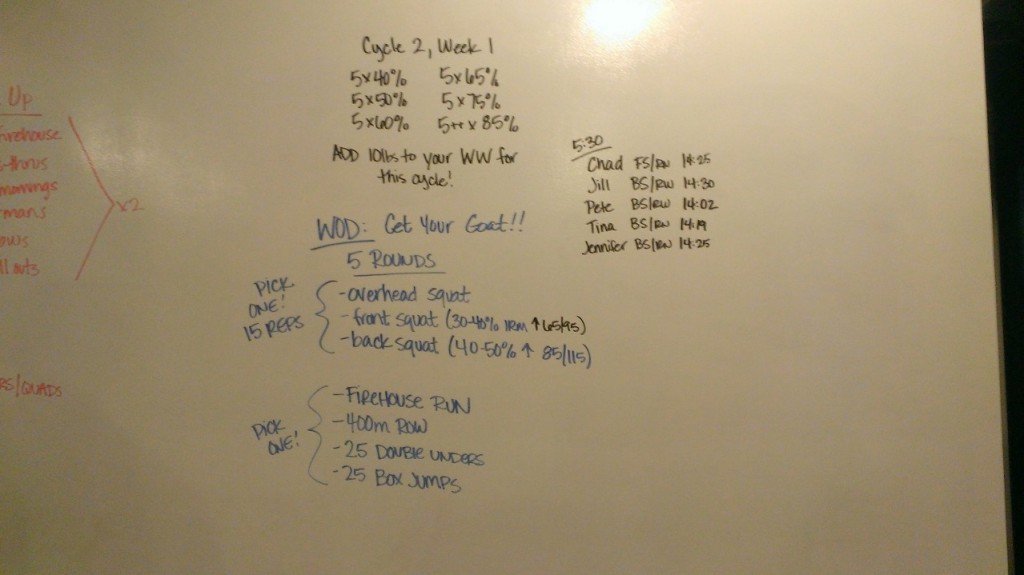 Up
Firehouse
s-thrus
mornings
mans
ows
ll outs
x2
RS/QUADS
Cycle 2, Week 1
5x40% 5x65%
5x50% 5x75%
5x60% 5++ x 85%
ADD 10lbs to your WW for
this cycle!
WOD: Get Your Goat!!
5 ROUNDS
PICK
ONE!
15 REPS
-overhead squat
-front squat (30-40% 1RM ↑ 65/95)
-back squat (40-50% ↑ 85/115)
PICK
ONE!
-FIREHOUSE RUN
-400m ROW
-25 DOUBLE UNDERS
-25 BOX JUMPS
5:30
Chad FS/RW 14:25
Jill BS/RW 14:30
Pete BS/RW 14:02
Tina BS/RW 14:19
Jennifer BS/RW 14:25